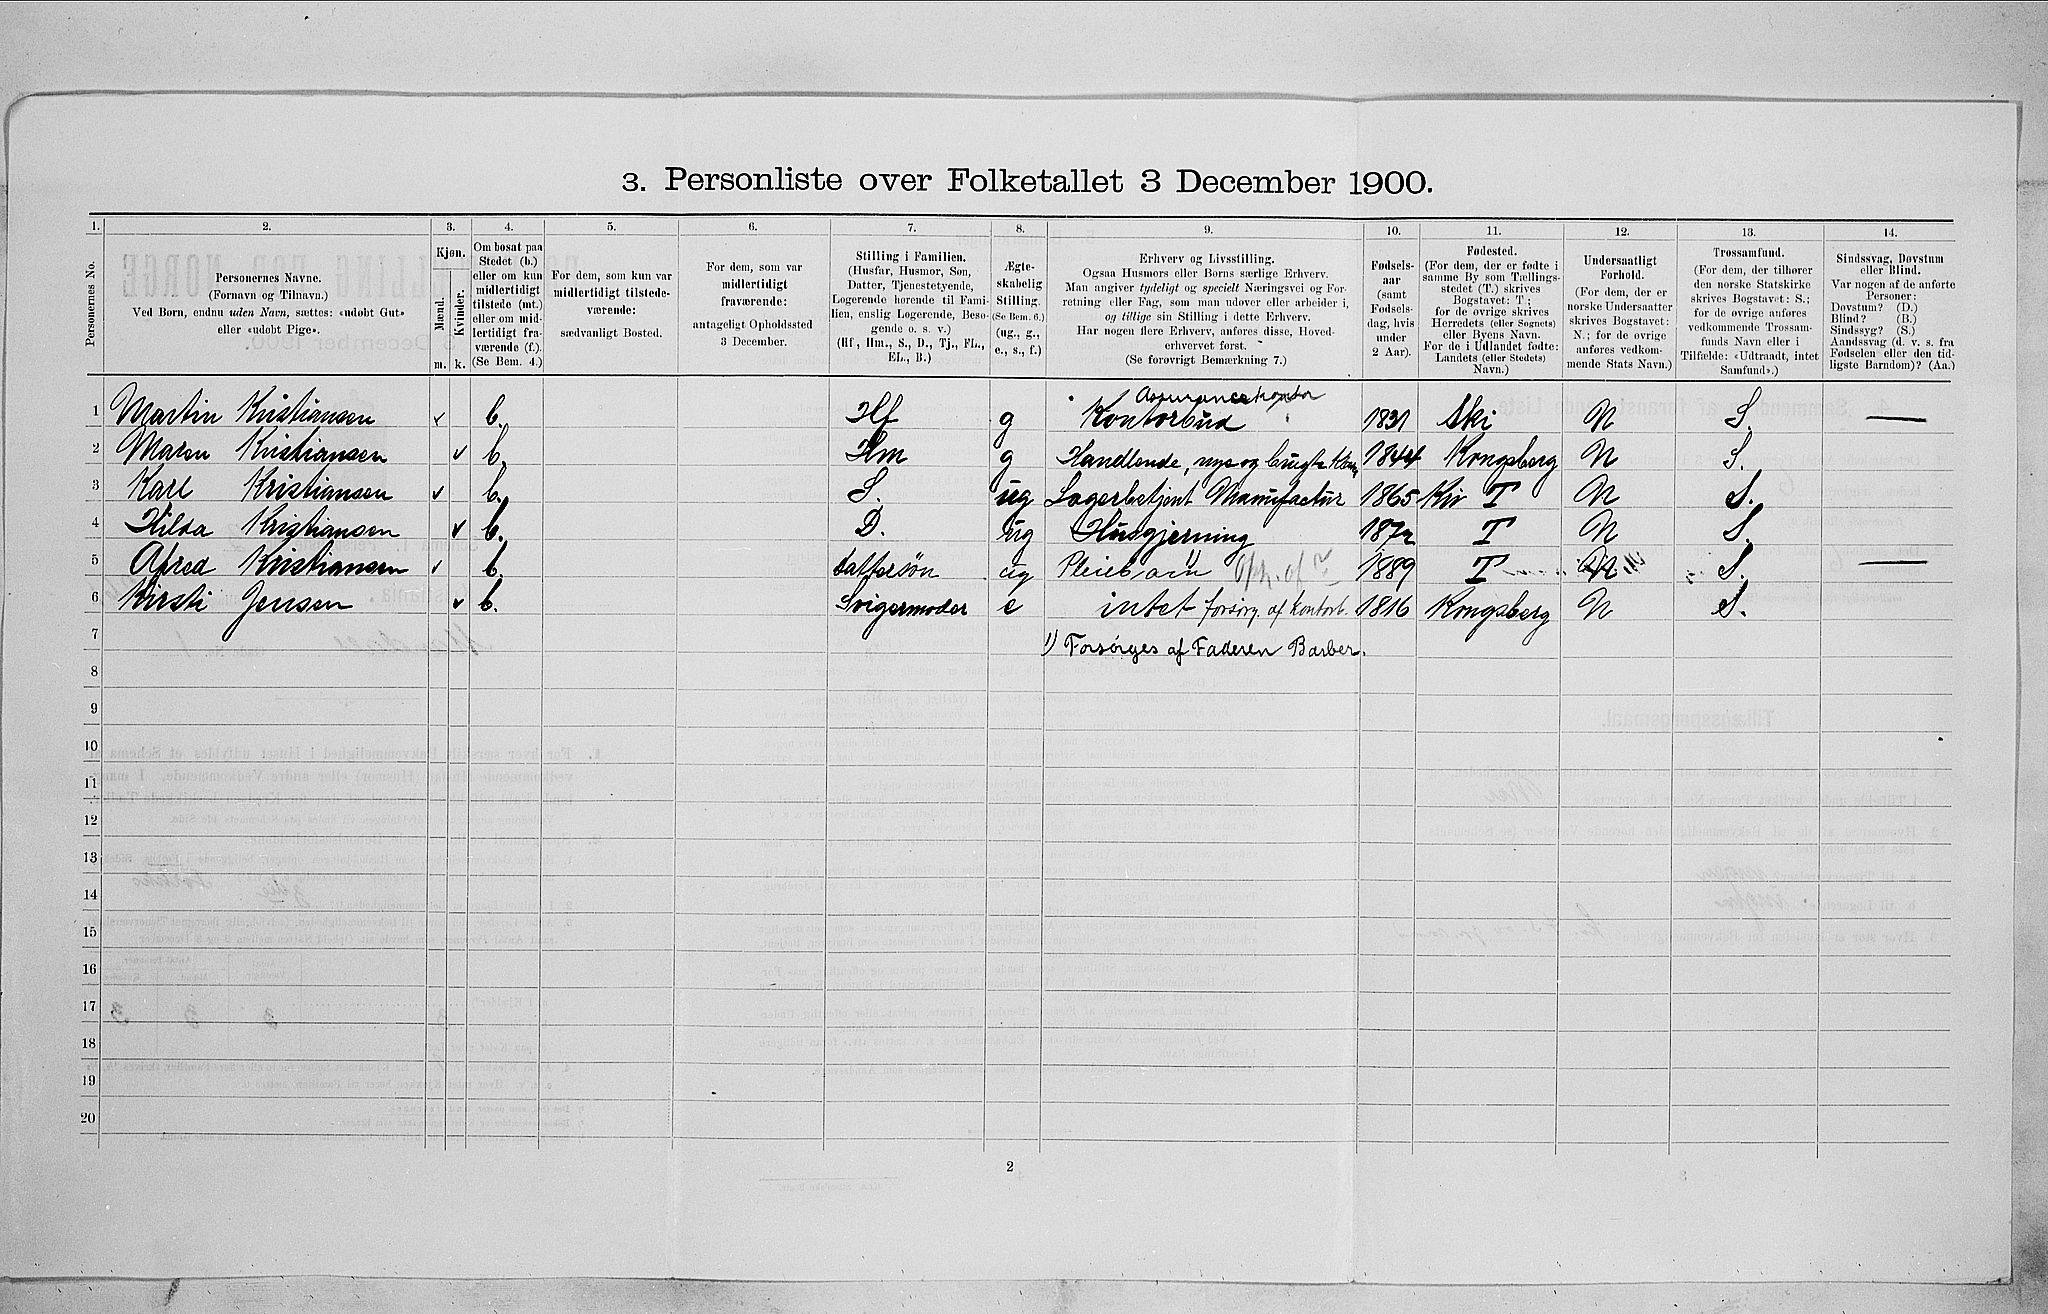 3. Personliste over Folketallet 3 December 1900.
1. 2. 3. 4. 5. 6. 7. 8. 9. 10. 11. 12. 13. 14.
Personernes No.
Personernes Navne.
(Fornavn og Tilnavn.)
Ved Børn, endnu uden Navn, sættes: «udøbt Gut»
eller «udøbt Pige».
Kjøn.
Mænd.
Kvinder.
m. k.
Om bosat paa
Stedet (b.)
eller om kun
midlertidigt
tilstede (mt.)
eller om mid-
lertidigt fra-
værende (f.).
(Se Bem. 4.)
For dem, som kun var
midlertidigt tilstede-
værende:
sædvanligt Bosted.
For dem, som var
midlertidigt
fraværende:
antageligt Opholdssted
3 December.
Stilling i Familien.
(Husfar, Husmor, Søn,
Datter, Tjenestetyende,
Logerende hørende til Fami-
lien, enslig Logerende, Besø-
gende o. s. v.)
(Hf, Hm., S., D., Tj., FL.,
EL., B.)
Ægte-
skabelig
Stilling.
(Se Bem. 6.)
(ug., g.,
e., s., f.)
Erhverv og Livsstilling.
Ogsaa Husmors eller Børns særlige Erhverv.
Man angiver tydeligt og specielt Næringsvei og For-
retning eller Fag, som man udøver eller arbeider i,
og tillige sin Stilling i dette Erhverv.
Har nogen flere Erhverv, anføres disse, Hoved-
erhvervet først.
(Se forøvrigt Bemærkning 7.)
Fødsels-
aar
(samt
Fødsels-
dag, hvis
under
2 Aar).
Fødested.
(For dem, der er fødte i
samme By som Tællings-
stedet (T.) skrives
Bogstavet: T;
for de øvrige skrives
Herredets (eller Sognets)
eller Byens Navn.
For de i Udlandet fødte:
Landets (eller Stedets)
Navn.)
Undersaatligt
Forhold.
(For dem, der er
norske Undersaatter
skrives Bogstavet:
N.; for de øvrige
anføres vedkom-
mende Stats Navn.)
Trossamfund.
(For dem, der tilhører
den norske Statskirke
skrives Bogstavet: S.;
for de øvrige anføres
vedkommende Trossam-
funds Navn eller i
Tilfælde: «Udtraadt, intet
Samfund».)
Sindssvag, Døvstum
eller Blind.
Var nogen af de anførte
Personer:
Døvstum? (D.)
Blind? (B.)
Sindssyg? (S.)
Aandssvag (d. v. s. fra
Fødselen eller den tid-
ligste Barndom)? (Aa.)
Assurancekontor
1 Martin Kristiansen v b. Hf g Kontorbud 1831 Ski N S. —
2 Maren Kristiansen v b. Hm g Handlende, nye og brugte 1844 Kongsberg N S.
3 Karl Kristiansen v b. S. ug Lagerbetjent Manufactur 1865 Kra T N S.
4 Hilda Kristiansen v b. D. ug Husgjerning 1872 T N S.
5 Alfred Kristiansen v b. dattersøn ug Pleiebarn 1) 1889 T N S. —
6 Kirsti Jensen v b. Svigermoder e intet forsørg. af kontorb. 1816 Kongsberg N S.
7
1) Forsørges af Faderen Barber.
8
9
10
11
12
13
14
15
16
17
18
19
20
2